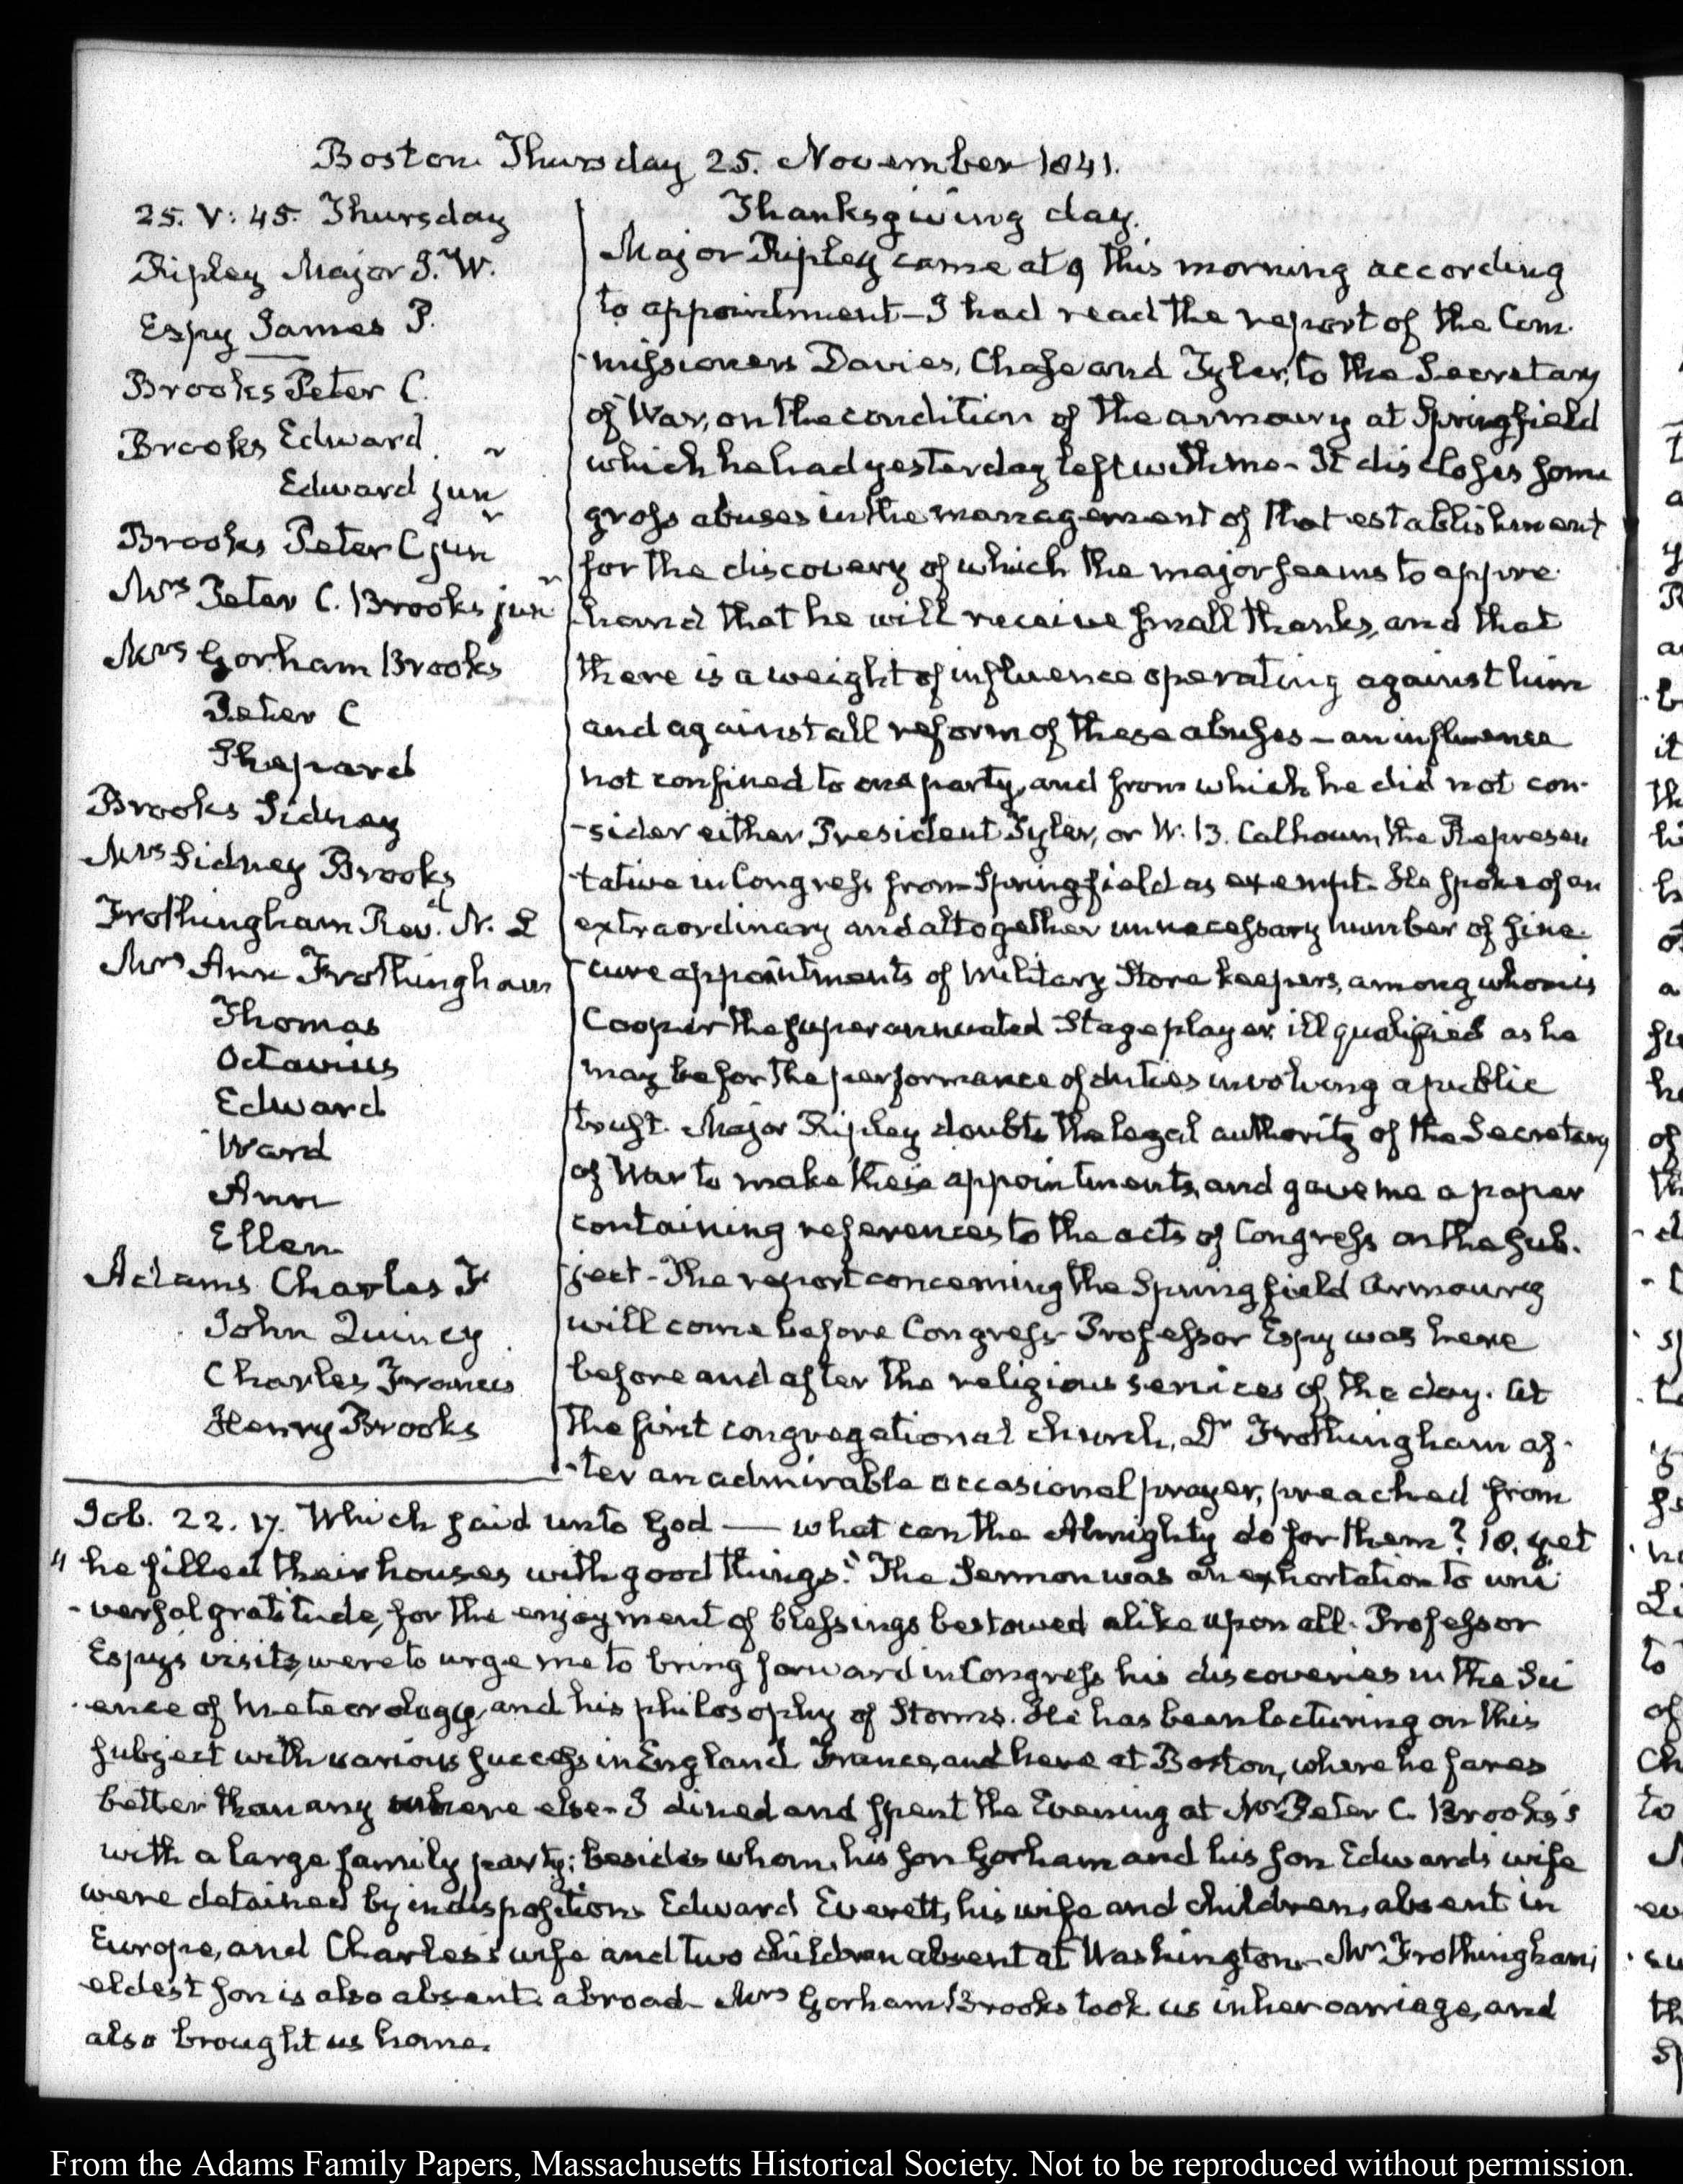 Boston Thursday 25. November 1841.
25. V: 45. Thursday
Ripley Major J. W.
Espy James P.
Brooks Peter C.
Brooks Edward
Edward junr
Brooks Peter C junr
Mrs Peter C. Brooks junr
Mrs Gorham Brooks
Peter C
Shepard
Brooks Sidney
Mrs Sidney Brooks
Frothingham Revd. N. L
Mrs Ann Frothingham
Thomas
Octavius
Edward
Ward
Ann
Ellen
Adams Charles F
John Quincy
Charles Francis
Henry Brooks
Thanksgiving day.
Major Ripley came at 9 this morning according
to appointment—I had read the report of the Com-
-missioners Davies, Chase and Tyler, to the Secretary
of War, on the condition of the armoury at Springfield
which he had yesterday left with me—It discloses some
gross abuses in the management of that establishment
for the discovery of which the major seems to appre-
-hend that he will receive small thanks, and that
there is a weight of influence operating against him
and against all reform of these abuses—an influence
not confined to one party, and from which he did not con-
-sider either President Tyler, or W. B. Calhoun, the Represen
-tative in Congress from Springfield as exempt. He spoke of an
extraordinary and altogether unnecessary number of sine-
-cure appointments of Military Store keepers, among whom is
Cooper the superannuated Stage player, ill qualified as he
may be for the performance of duties involving a public
trust. Major Ripley doubts the legal authority of the Secretary
of War to make these appointments, and gave me a paper
containing references to the acts of Congress on the sub-
-ject—The report concerning the Springfield Armoury
will come before Congress—Professor Espy was here
before and after the religious services of the day. At
the first congregational church, Dr Frothingham af-
-ter an admirable occasional prayer, preached from
Job. 22. 17. Which said unto God — what can the Almighty do for them? 18. yet
"he filled their houses with good things." The Sermon was an exhortation to uni
-versal gratitude, for the enjoyment of blessings bestowed alike upon all. Professor
Espy's visits, were to urge me to bring forward in Congress his discoveries in the Sci
-ence of Meteorology, and his philosophy of Storms. He has been lecturing on this
subject with various success in England France, and here at Boston, where he fares
better than any where else—I dined and spent the Evening at Mr Peter C. Brooks's
with a large family party; besides whom, his son Gorham and his son Edward's wife
were detained by indisposition. Edward Everett, his wife and children, absent in
Europe, and Charles's wife and two children absent at Washington—Mr Frothingham's
eldest son is also absent abroad—Mrs Gorham Brooks took us in her carriage, and
also brought us home.
From the Adams Family Papers, Massachusetts Historical Society. Not to be reproduced without permission.